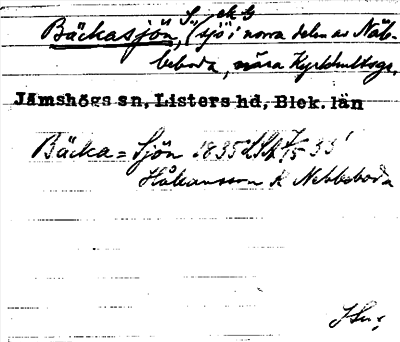 Bäckasjön, S. ek G
(sjö i norra delen av Näb-
beboda, nära Kyrkhultsgr.
Jämshögs sn, Listers hd, Blek. län
Bäcka=Sjön 1835 LSA
Håkansson K Nebbeboda